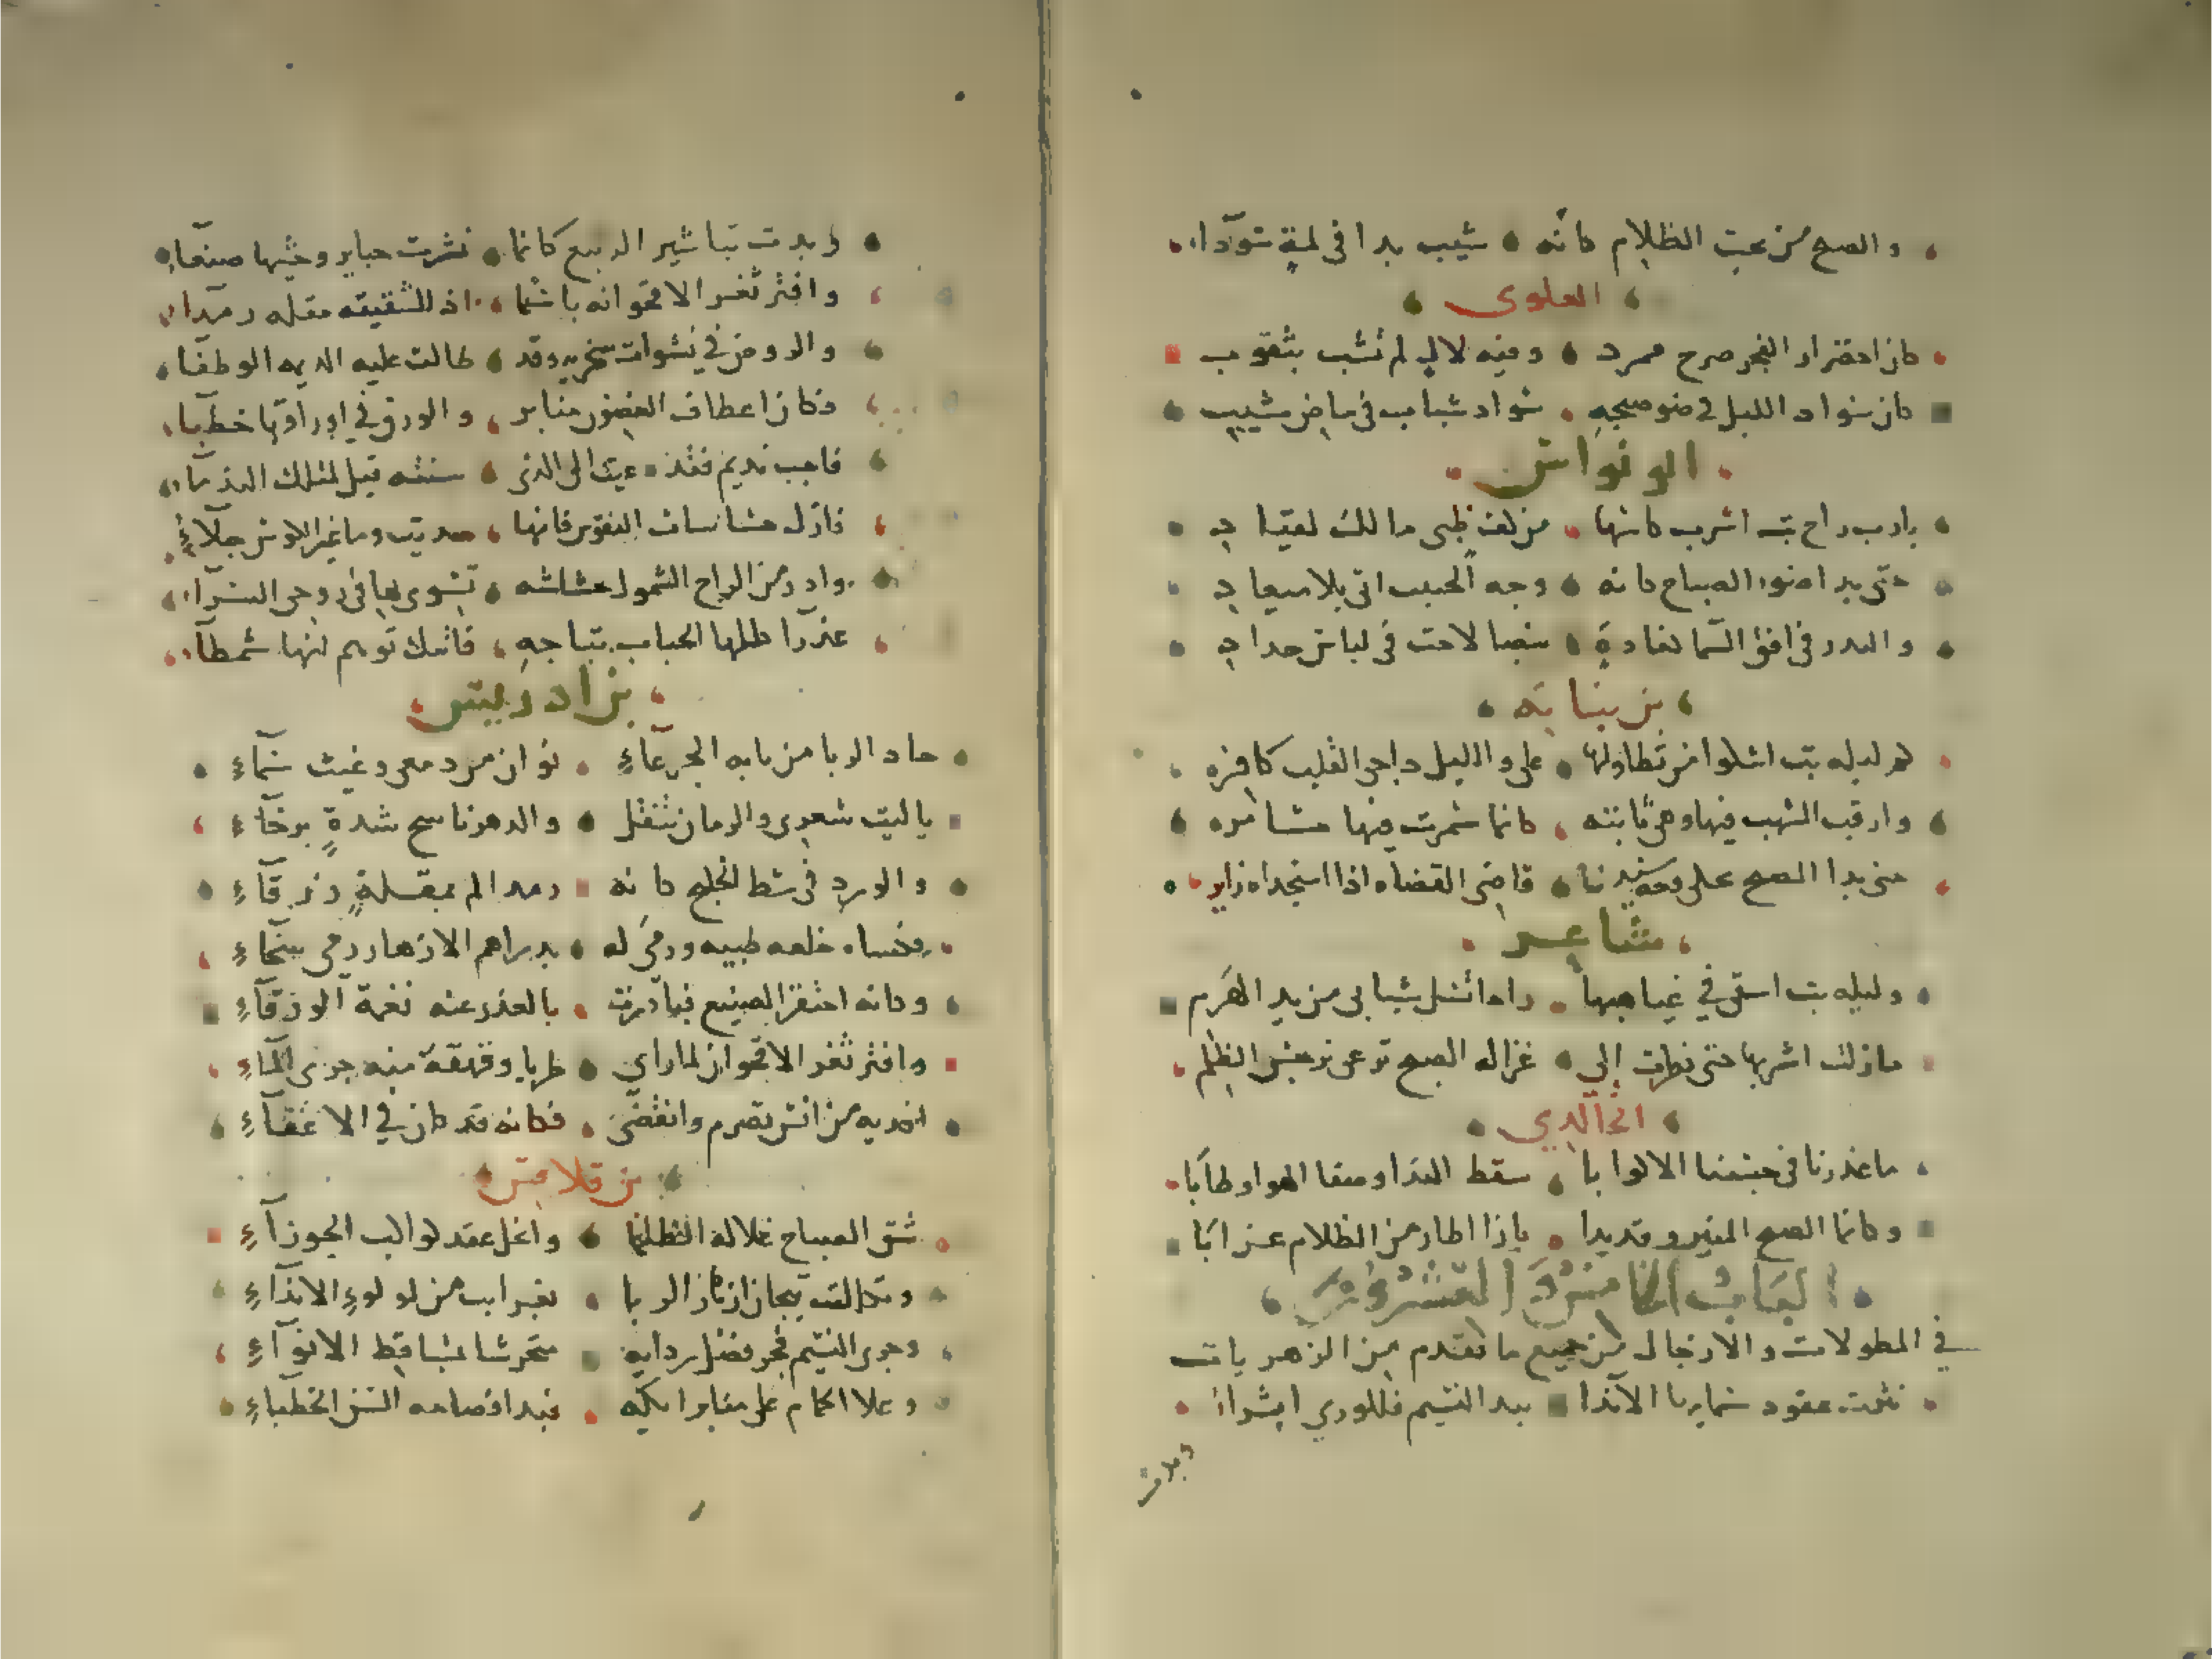 والصبح من تحت الظلام كانه شيب بدا في لمة سوداء
العلوي
كان اخضرار الفجر صرح ممرد وفيه لال لم تشب بثقوب
كان سواد الليل في ضو صبحه سواد شباب في بياض مشيب
ابو نواس
يا رب راح بت اشرب كاسها من كف ظبي مالك لقيادي
حتى بدا ضوء الصباح كانه وجه الحبيب اتى بلا ميعاد
والبدر في افق السما كغادة بيضا لاحت في لباس حداد
بن نباته
كم ليله بت اشكوا من تطاولها علي والليل داجي القلب كافره
وارقب الشهب فيها وهي ثابته كانما سمرت فيها مسامره
حتى بدا الصبح قاضي القضاه اذا استجداه زايره
شاعر
وليله بت اسقى في غياهبها راحا تسل شبابي من يد الهرم
ما زلت اشربها حتى نظرت الى غزاله الصبح ترعى نرجس الظلم
الخالدي
ما عذرنا في حبسنا الاكوابا سقط الندا وصفا الهوا وطابا
وكانما الصبح المنير وقد بدا بازا اطار من الظلام غرابا
الباب الثامن والعشرون
في المطولات والارجال من جميع ما تقدم من الزهريات
نثرت عقود سمايها الاندا بيد النسيم فللورى اثراء
وبدت تباشير الربيع كانما نشرت حباير وشيها صنعاء
وافتر ثغر الاقحوانه باسما اذ للشقيقه مقله رمداء
والروض في نشوات سكر وقد طالت عليه الديمه الوطفاء
فكان اعطاف الغصون منابر والورق في اوراقها خطباء
فاجب نديم فقد دعيت الى الذي سنته قبل لمثلك الندماء
فازل حشاشات النفوس فانها صديت وما غير الكوس جلاء
وادر من الراح الشمول حشاشه تسري بها في روحي السراء
عذرا كللها الحباب بتاجه فاتتك توهم انها شمطاء
بن ادريس
جاد الربا من بابه الجرعاء نوان من دمعي وغيث سماء
يا ليت شعري والزمان تنقل والدهر ناسخ شدة برخاء
والورد في شط الخليج كانه رمد الم بمقلة زرقاء
بدراهم الازهار رمي سخاء
وكانه احتفز الصنيع فبادرت بالعذر عنه نغمة الورقاء
وافتر ثغر الاقحوان لما راى طربا وقهقه منه جري الماء
افديه من انس تصرم وانقضى فكانه قد كان في الاغفاء
بن قلاقس
شق الصباح غلالة الظلما وانحل عقد كواكب الجوزاء
وتكللت تيجان ازهار الربا بغرايب من لولوء الانداء
وجرى النسيم فجر فضل ردايه متحرشا بتساقط الانواء
وعلا الحمام على منابر ايكه فبدا فصاحه السن الخطباء